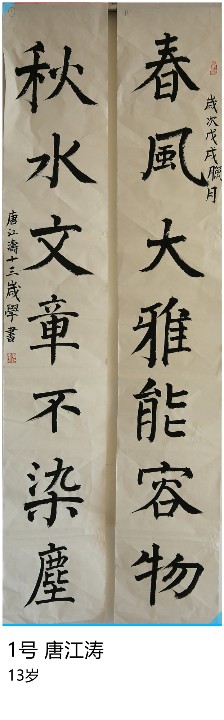 春風大雅能容物
歲次戊戌臘月
秋水文章不染塵
唐江濤十三歲學書
1号 唐江涛
13岁